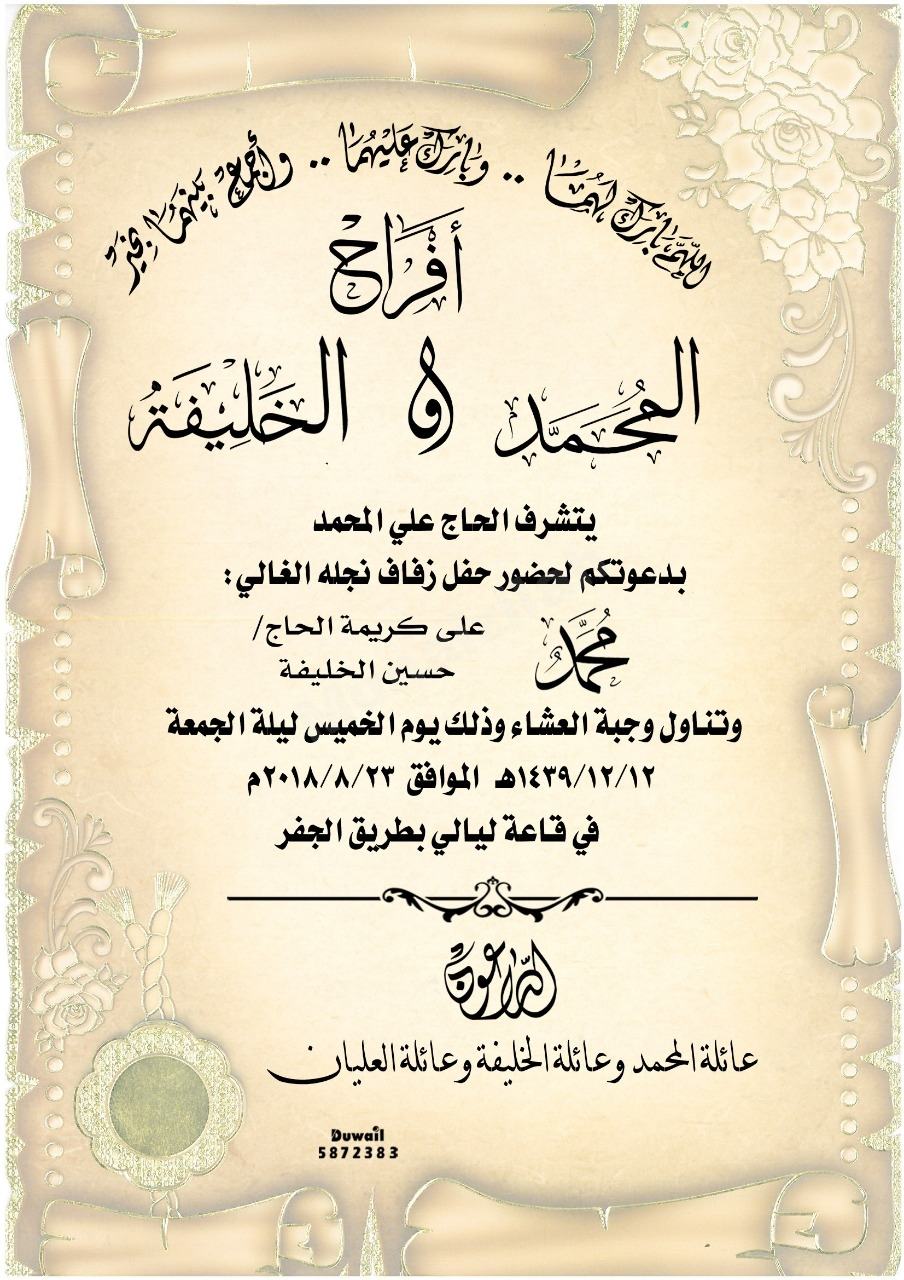 اللهم بارك لهما .. وبارك عليهما .. وأجمع بينهما بخير
أفراح
المحمد و الخليفة
يتشرف الحاج علي المحمد
بدعوتكم لحضور حفل زفاف نجله الغالي:
محمد
على كريمة الحاج/
حسين الخليفة
وتناول وجبة العشاء وذلك يوم الخميس ليلة الجمعة
١٤٣٩/١٢/١٢هـ الموافق ٢٠١٨/٨/٢٣م
في قاعة ليالي بطريق الجفر
الداعون
عائلة المحمد وعائلة الخليفة وعائلة العليان
Duwail
5872383